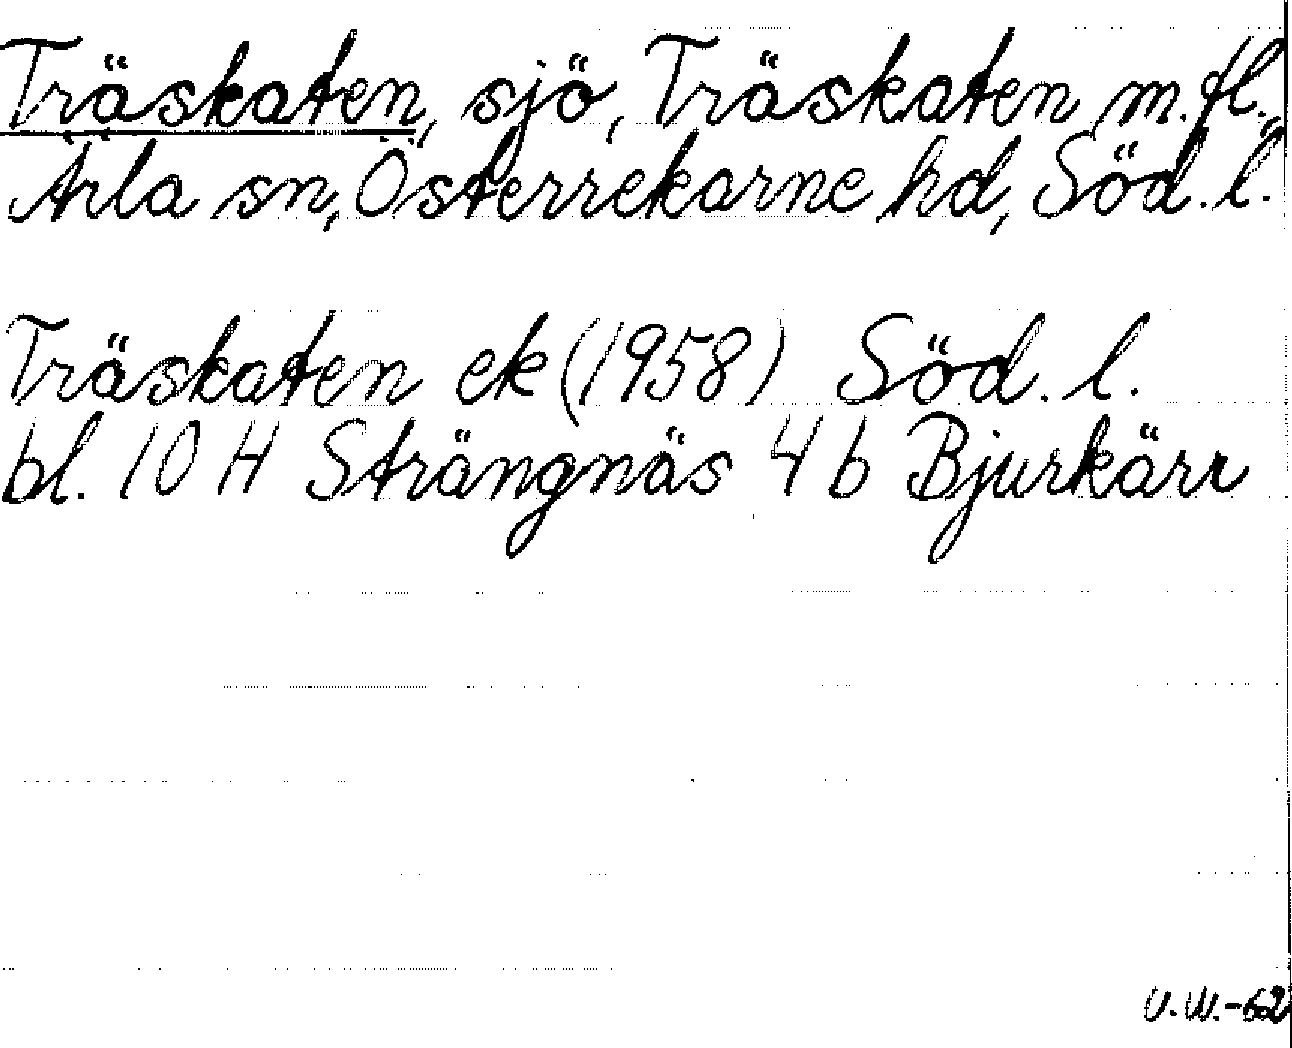 Träskaten, sjö, Träskaten m.fl.,
Ärla sn, Österrekarne hd, Söd. l.
Träskaten ek (1958) Söd. l.
bl. 10 H Strängnäs 4 b Bjurkärr
U.W.-62